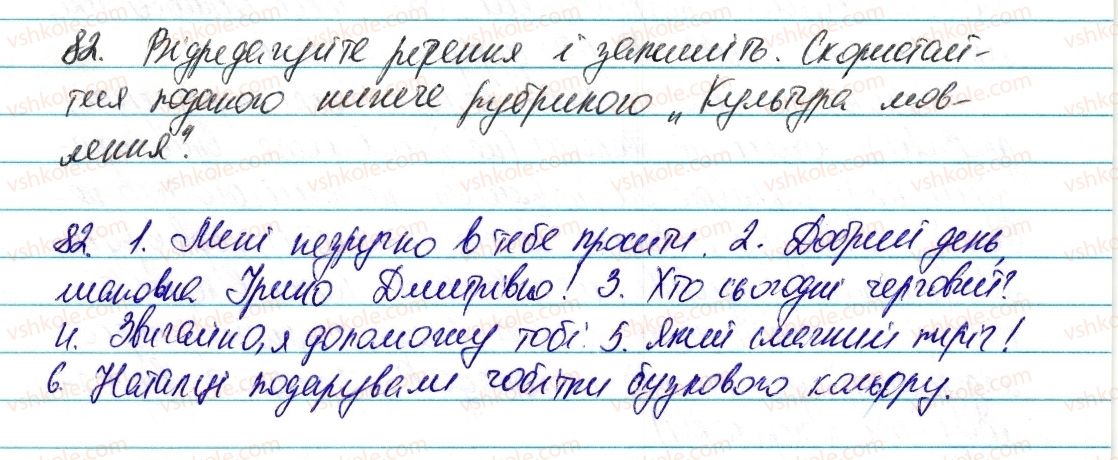 82. Відредагуйте речення і запишіть. Скористай-
теся поданою нижче рубрикою „Культура мов-
лення".
82. 1. Мені незручно в тебе просити. 2. Добрий день,
шановна Ірино Дмитрівно! 3. Хто сьогодні черговий?
4. Звичайно, я допоможу тобі. 5. Який смачний пиріг!
6. Наталці подарували чобітки бузкового кольору.